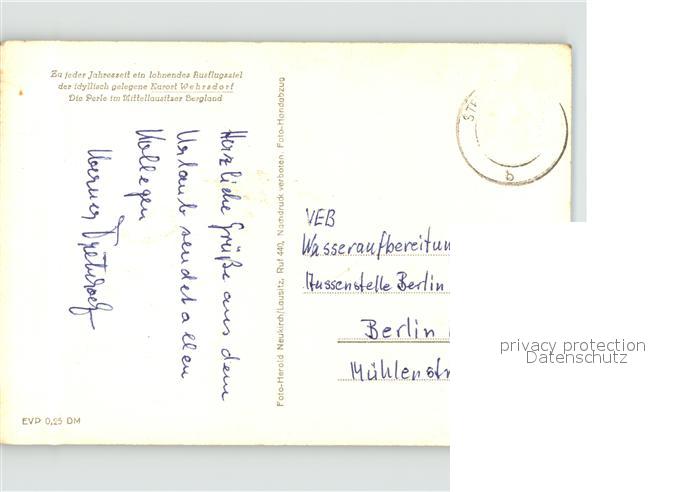 Zu jeder Jahreszeit ein lohnendes Ausflugsziel
der idyllisch gelegene Kurort Wehrsdorf
Die Perle im Mittellausitzer Bergland
Herzliche Grüße aus dem
Urlaub sendet allen
Kollegen
Werner
Foto-Herold Neukirch/Lausitz, Ruf 440, Nachdruck verboten. Foto-Handabzug
b
VEB
Wasseraufbereitun
Aussenstelle Berlin
Berlin
Mühlenstr
EVP 0,25 DM
privacy protection
Datenschutz